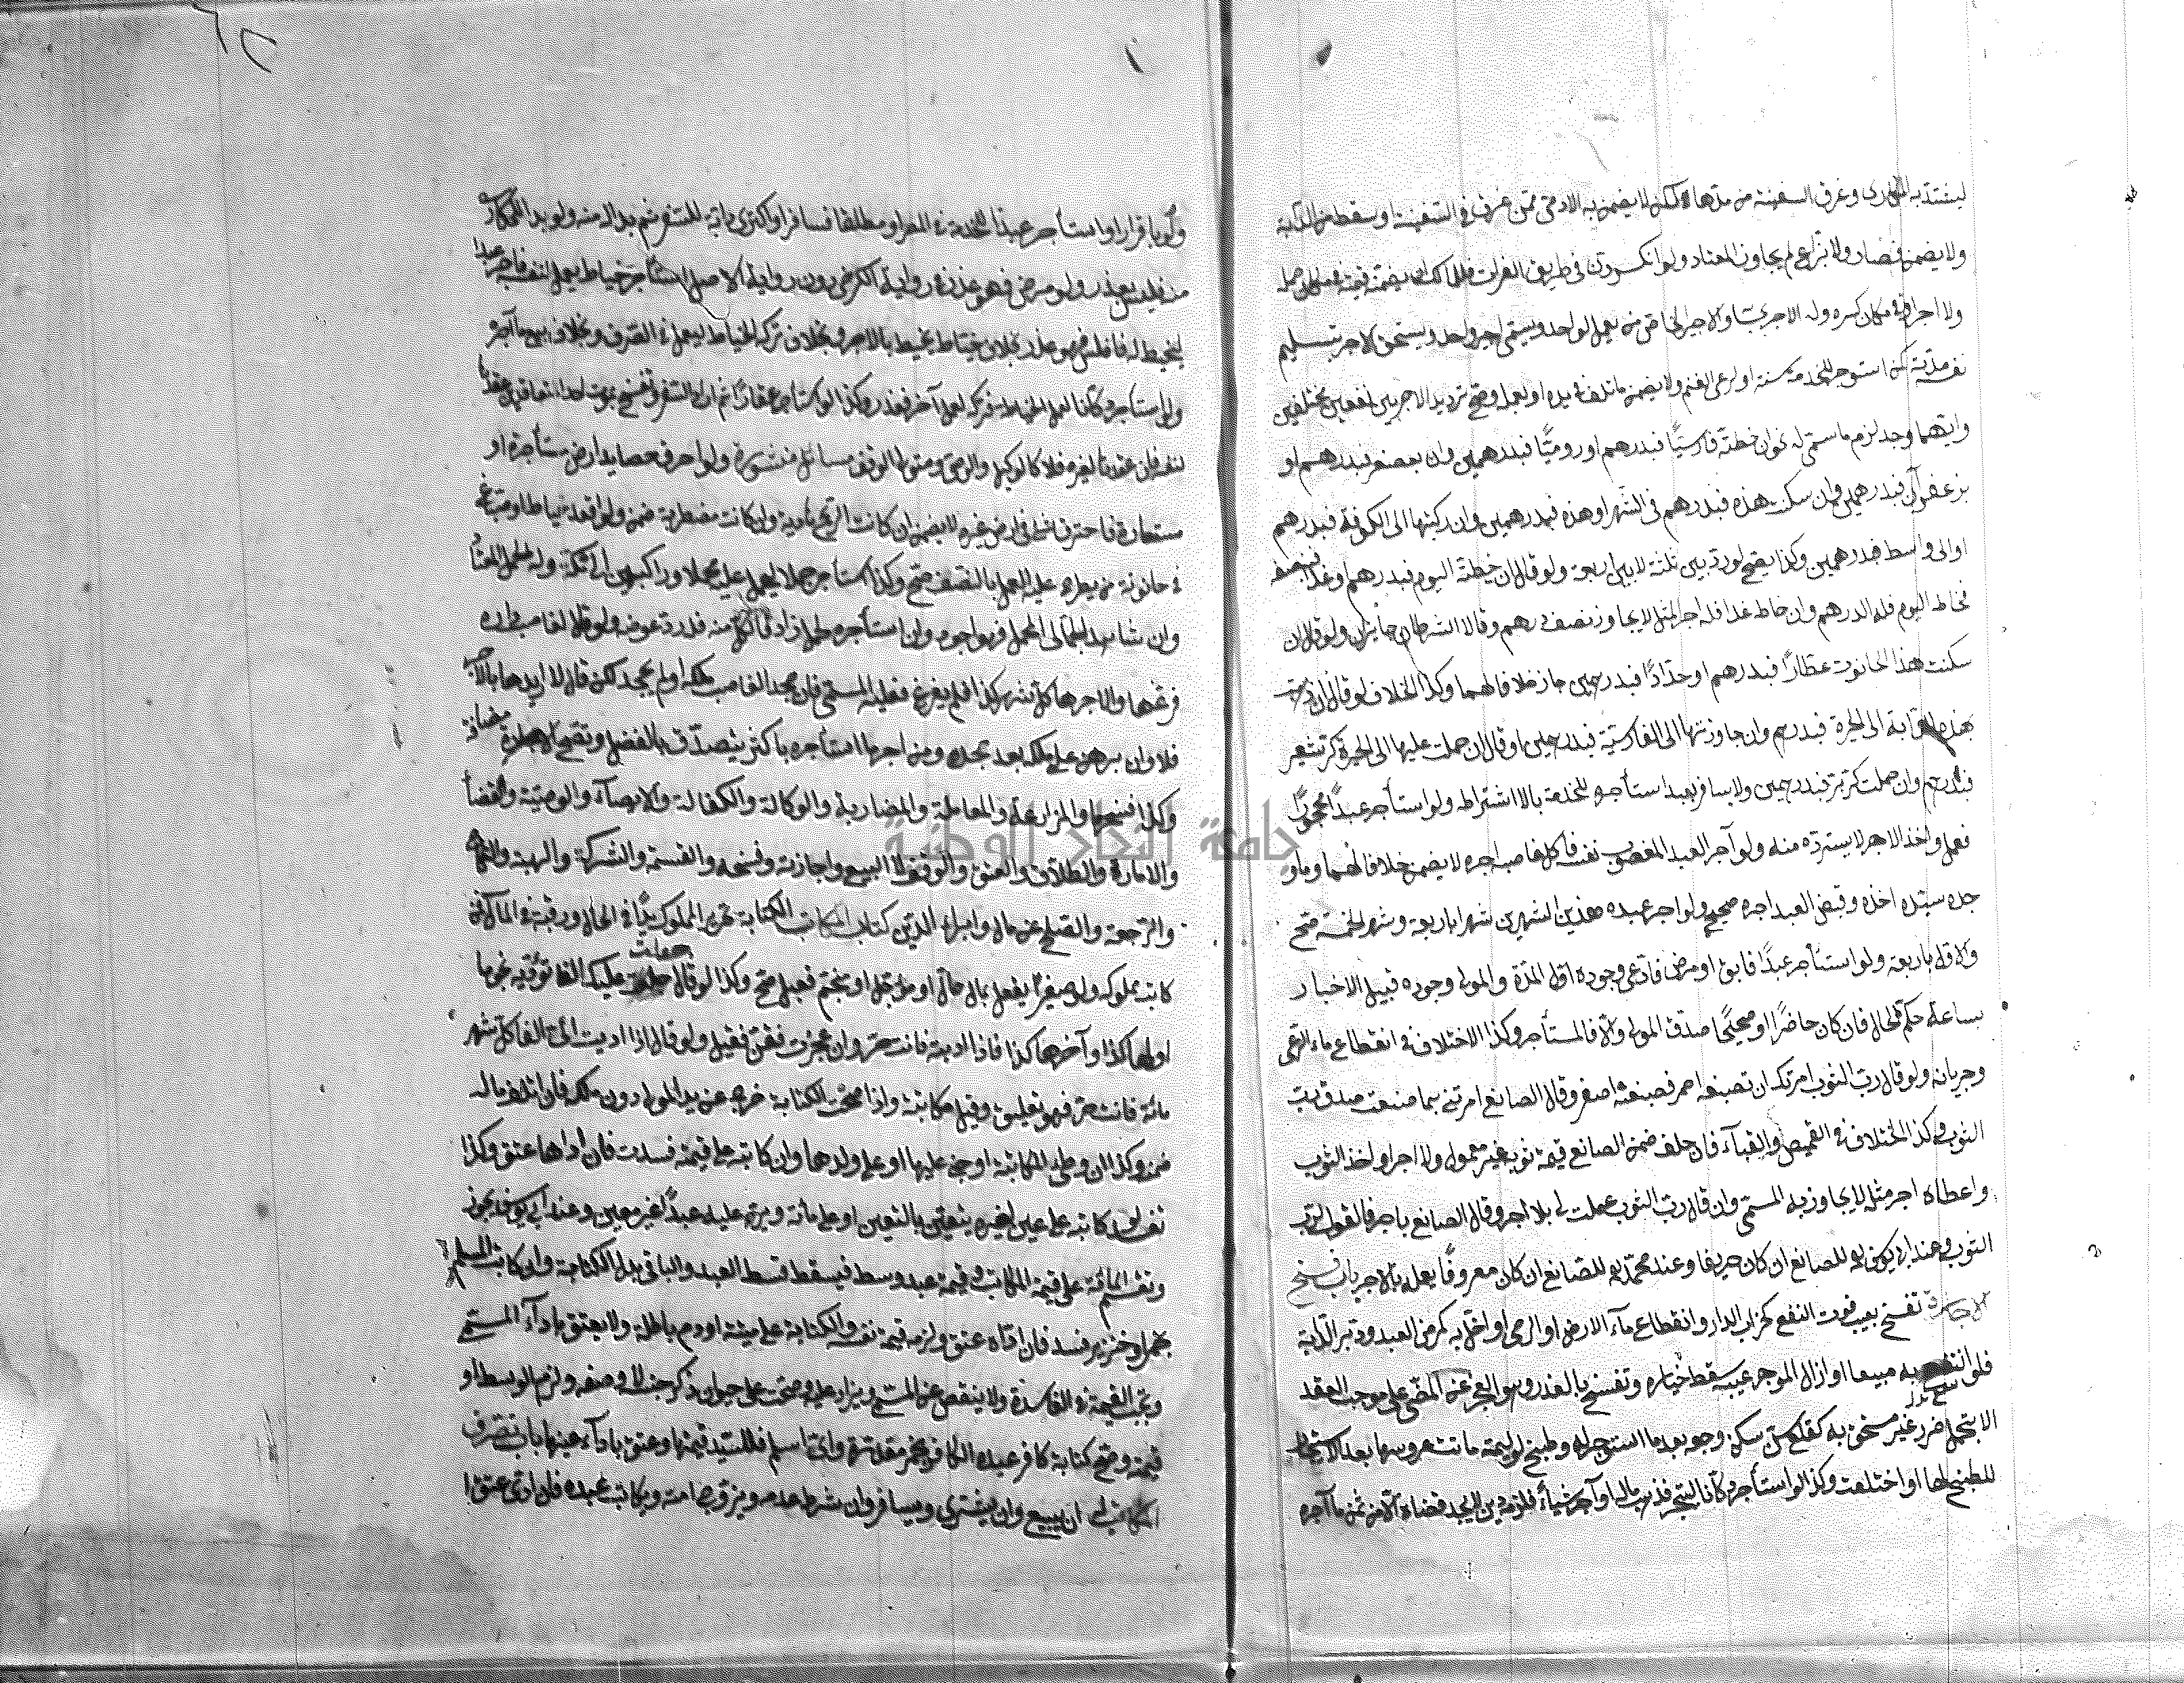 ليشتد به المكاري وغرق السفينة من مدها لكن لا يضمن به الادمي ممن غرق في السفينة او سقط من الدابة
ولا يضمن فصاد ولا بزاغ لم يجاوز المعتاد ولو انكسر دن في طريق الفرات فللمالك ان يضمنه قيمته في مكان حمله
ولا اجر او في مكان كسره وله الاجر بحسابه والاجير الخاص من يعمل لواحد ويسمى اجير واحد ويستحق الاجر بتسليم
نفسه مدته كمن استوجر للخدمة سنة او لرعي الغنم ولا يضمن ما تلف في يده او بعمله وصح ترديد الاجر بين نفعين مختلفين
وايهما وجد لزم ما سمى له نحو ان خطته فارسيا فبدرهم او روميا فبدرهمين وان بعصفر فبدرهم او
بزعفران فبدرهمين وان سكنت هذه فبدرهم في الشهر او هذه فبدرهمين وان ركبتها الى الكوفة فبدرهم
او الى واسط فبدرهمين وكذا يصح لو ردد بين ثلثة لا بين اربعة ولو قال ان خطته اليوم فبدرهم او غدا فبنصفه
فخاط اليوم فله الدرهم وان خاط غدا فله اجر المثل لا يجاوز نصف درهم وقالا الشرطان جائزان ولو قال ان
سكنت هذا الحانوت عطارا فبدرهم او حدادا فبدرهمين جاز خلافا لهما وكذا الخلاف لو قال ان ذهبت
بهذه الدابة الى الحيرة فبدرهم وان جاوزتها الى القادسية فبدرهمين او قال ان حملت عليها الى الحيرة كر شعير
فبدرهم وان حملت كر بر فبدرهمين ولا يسافر بعبد استأجره للخدمة بلا اشتراطه ولو استأجر عبدا محجورا
فعمل واخذ الاجر لا يسترده منه ولو آجر العبد المغصوب نفسه فأكل غاصبه اجره لا يضمن خلافا لهما وما و
جده سيده اخذه وقبض العبد اجره صحيح ولو اجر عبده هذين الشهرين شهرا باربعة وشهرا بخمسة صح
والاول باربعة ولو استأجر عبدا فابق او مرض فادعى وجوده اول المدة والمولى وجوده قبيل الاخبار
بساعة حكم الحال فان كان حاضرا او صحيحا صدق المولى والا فالمستأجر وكذا الاختلاف في انقطاع ماء الرحى
وجريانه ولو قال رب الثوب امرتك ان تصبغه احمر فصبغته اصفر وقال الصانع امرتني بما صنعت صدق رب
الثوب وكذا الاختلاف في القميص والقباء فان حلف ضمن الصانع قيمة ثوبه غير معمول ولا اجر او اخذ الثوب
واعطاه اجر مثله لا يجاوز به المسمى وان قال رب الثوب عملت لي بلا اجر وقال الصانع باجر فالقول لرب
الثوب وعند ابي يوسف للصانع ان كان حريفا وعند محمد للصانع ان كان معروفا بعمله بالاجر باب فسخ
الاجارة تفسخ بعيب فوت النفع كخراب الدار وانقطاع ماء الارض او الرحى او اخل به كمرض العبد ودبر الدابة
فلو انتفع به معيبا او ازال الموجر عيبه سقط خياره وتفسخ بالعذر وهو العجز عن المضي على موجب العقد
الا بتحمل ضرر غير مستحق به كقلع سن سكن وجعه بعد ما استوجر له وطبخ لوليمة ماتت عروسها بعد الاستيجار
للطبخ لها او اختلعت وكذا لو استأجر دكانا ليتجر فذهب ماله او آجر شيأ فلزمه دين لا يجد قضاءه الا من ثمن ما آجره
ولو باقرار او استأجر عبدا للخدمة في المصر او مطلقا فسافر او اكترى دابة للسفر ثم بدا له منه ولو بدا للمكاري
منه فليس بعذر ولو مرض فهو عذر في رواية الكرخي دون رواية الاصل ولو استأجر خياط يعمل لنفسه عبدا
ليخيط له فافلس فهو عذر بخلاف خياط يخيط بالاجر وبخلاف تركه الخياطة ليعمل في الصرف وبخلاف بيع ما آجره
ولو استأجر دكانا لعمل الخياطة فتركه لعمل آخر فعذر وكذا لو استأجر عقارا ثم اراد السفر وتنفسخ بموت احد العاقدين عقدها
لنفسه فان عقدها لغيره فلا كالوكيل والوصي ومتولي الوقف مسائل منثورة ولو احرق حصايد ارض مستأجرة او
مستعارة فاحترق شئ في ارض غيره لا يضمن ان كانت الريح هادية وان كانت مضطربة ضمن ولو اقعد خياط او صباغ
في حانوته من يطرح عليه العمل بالنصف صح وكذا لو استأجر جملا ليحمل عليه محملا وراكبين الى مكة وله المحمل المعتاد
وان شاهد الجمال المحمل فهو اجود وان استأجره لحمل زاد فاكل منه فله رد عوضه ولو قال لغاصب داره
فرغها والا اجرها كل شهر بكذا فلم يفرغ فعليه المسمى فان جحد الغاصب ملكه او لم يجحد لكن قال لا اريدها بالاجر
فلا وان برهن على ملكه بعد جحده ومن اجر ما استأجره باكثر يتصدق بالفضل وتصح الاجارة مضافة
وكذا فسخها والمزارعة والمعاملة والمضاربة والوكالة والكفالة والايصاء والوصية والقضاء
والامارة والطلاق والعتق والوقف لا البيع واجازته وفسخه والقسمة والشركة والهبة والنكاح
والرجعة والصلح عن مال وابراء الدين كتاب المكاتب الكتابة تحرير المملوك يدا في الحال ورقبة في المآل فمن
كاتب مملوكه ولو صغيرا يعقل بمال حال او مؤجل او منجم فقبل صح وكذا لو قال جعلت عليك الفا تؤديه نجوما
اولها كذا وآخرها كذا فاذا اديته فانت حر وان عجزت فقن فقبل ولو قال اذا اديت الي الفا كل شهر
مائة فانت حر فهو تعليق وقيل مكاتبة واذا صحت الكتابة خرج عن يد المولى دون ملكه فان اتلف ماله
ضمن وكذا ان وطئ المكاتبة او جنى عليها او على ولدها وان كاتبه على قيمته فسدت فان اداها عتق وكذا
تفسد لو كاتبه على عين لغيره يتعين بالتعيين او على مائة ويرد عليه عبدا لغير معين وعند ابي يوسف يجوز
وتقسم المائة على قيمة المكاتب وقيمة عبد وسط فيسقط قسط العبد والباقي بدل الكتابة وان كاتب المسلم
بخمر او خنزير فسد فان اداه عتق ولزمه قيمة نفسه والكتابة على ميتة او دم باطلة ولا يعتق باداء المسمى
وتجب القيمة في الفاسدة ولا ينقص عن المسمى ويزاد عليه وصحت على حيوان ذكر جنسه لا وصفه ولزم الوسط او
قيمته وصح كتابة كافر عبده الكافر بخمر مقدرة واي اسلم فللسيد قيمتها وعتق باداء عينها باب تصرف
المكاتب له ان يبيع وان يشتري ويسافر وان شرط عدمه ويزوج امته ويكاتب عبده فان ادى عتق ا